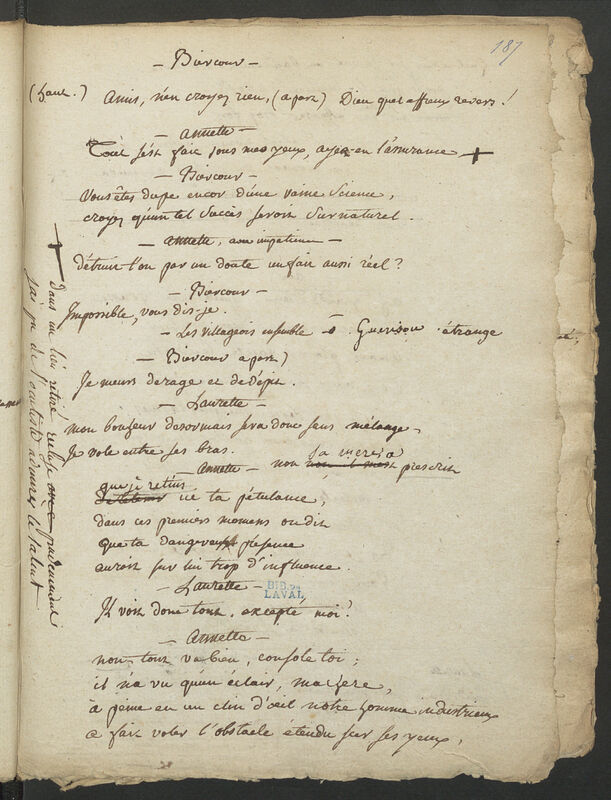 187
— Biercour —
(haut.) Amis, n'en croyez rien, (a part) Dieu quel affreux revers!
— annette —
Tout s'est fait sous mes yeux, ayez-en l'assurance, +
— Biercour —
Vous êtes dupe encor d'une vaine Science,
croyez qu'un tel Succès seroit Surnaturel.
— annette, avec impatience —
détruit l'on par un doute un fait aussi réel?
— Biercour —
Impossible, vous dis-je.
— Les villageois ensemble — ô Guerison étrange
— Biercour a part)
Je meurs de rage et de dépit.
— Laurette —
mon bonheur desormais sera donc sans mélange,
Je vole entre ses bras.
— Annette — non sa mere a prescrit
que je retins
ici ta pétulance,
dans ces premiers momens on dit
que ta dangereuse présence
auroit sur lui trop d'influence.
— Laurette —
BIB. DE
LAVAL
Il voit donc tout, excepté moi?
— Annette —
non tout va bien, console toi;
il n'a vu qu'un éclair, ma chere,
à peine en un clin d'œil notre homme industrieux
a fait voler l'obstacle étendu sur ses yeux,
+ Dans un lieu retiré prudemment
j'ai pu de l'oculiste admirer le talent